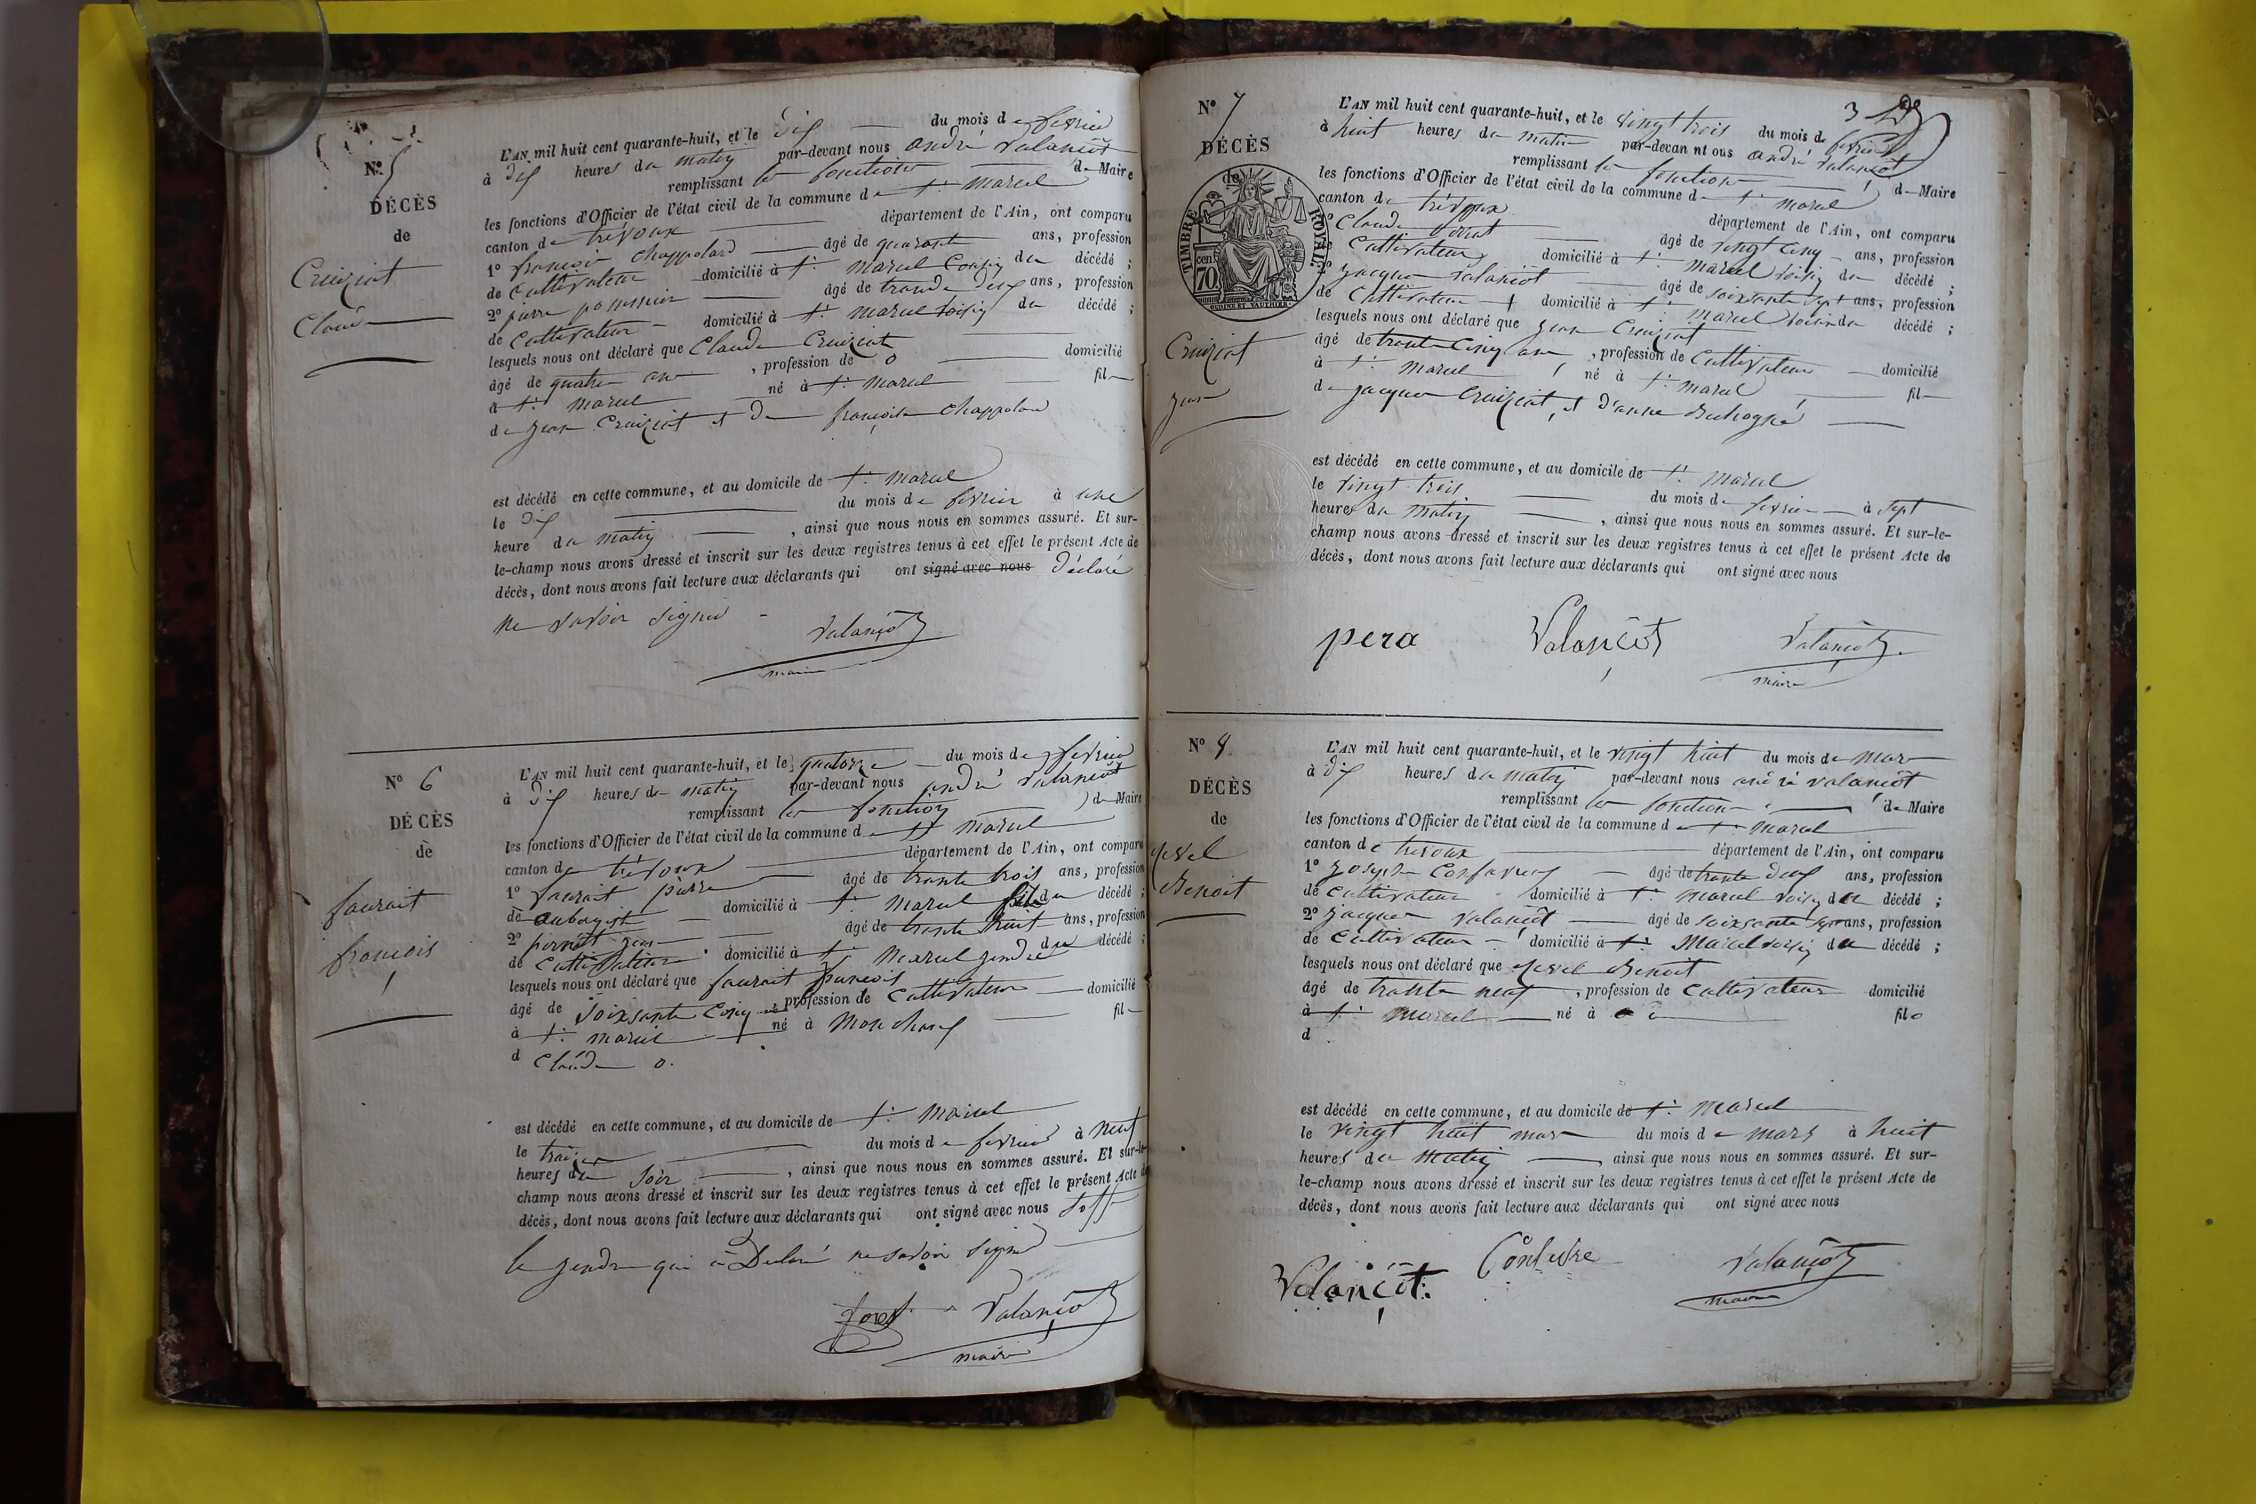 N° 5
DÉCÈS
de
Cruiziat
Claude
L'AN mil huit cent quarante-huit, et le dix du mois de fevrier
à dix heures du matin par-devant nous andré Valançot
remplissant les fonctions de Maire
les fonctions d'Officier de l'état civil de la commune de St marcel
canton de trévoux département de l'Ain, ont comparu
1° françois chappolard âgé de quarante ans, profession
de Cultivateur domicilié à St marcel du décédé ;
2° pierre âgé de trande deux ans, profession
de Cultivateur domicilié à St marcel voisin du décédé ;
lesquels nous ont déclaré que Claude Cruiziat
âgé de quatre ans, profession de o domicilié
à St marcel né à St marcel fil
de jean Cruiziat et de françoise chappolard
est décédé en cette commune, et au domicile de St marcel
le dix du mois de fevrier à une
heure du matin, ainsi que nous nous en sommes assuré. Et sur-
le-champ nous avons dressé et inscrit sur les deux registres tenus à cet effet le présent Acte de
décès, dont nous avons fait lecture aux déclarants qui ont signé avec nous déclaré
ne savoir signer
Valançot
maire
N° 6
DÉCÈS
de
faurait
francois
L'AN mil huit cent quarante-huit, et le quatorze du mois de fevrier
à dix heures du matin par-devant nous andré Valançot
remplissant les fonction de Maire
les fonctions d'Officier de l'état civil de la commune de St marcel
canton de trévoux département de l'Ain, ont comparu
1° faurait pierre âgé de trante trois ans, profession
de aubergist domicilié à St marcel fils du décédé ;
2° jean âgé de trante huit ans, profession
de Cultivateur domicilié à St marcel gendre du décédé ;
lesquels nous ont déclaré que faurait francois
âgé de soixsante Cinq ans, profession de Cultivateur domicilié
à St marcel né à fil
d Claude o.
est décédé en cette commune, et au domicile de St marcel
le du mois de fevrier à neuf
heures du soir, ainsi que nous nous en sommes assuré. Et sur-le-
champ nous avons dressé et inscrit sur les deux registres tenus à cet effet le présent Acte de
décès, dont nous avons fait lecture aux déclarants qui ont signé avec nous soff
le gendre qui a Delaré ne savoir signé
foret Valançot
maire
N° 7
DÉCÈS
de
TIMBRE ROYAL
70 cent
Cruiziat
jean
3
L'AN mil huit cent quarante-huit, et le vingt trois du mois de fevrier
à huit heures du matin par-devant nous andré Valançot
remplissant les fonctions de Maire
les fonctions d'Officier de l'état civil de la commune de St marcel
canton de trévoux département de l'Ain, ont comparu
1° Claude âgé de vingt cinq ans, profession
Cultivateur domicilié à St marcel voisin du décédé ;
2° jacques valançot âgé de soixsante sept ans, profession
de Cultivateur domicilié à St marcel voisin du décédé ;
lesquels nous ont déclaré que jean Cruiziat
âgé de trante Cinq ans, profession de Cultivateur domicilié
à St marcel né à St marcel fil
de jacques Cruiziat et d'anne
est décédé en cette commune, et au domicile de St marcel
le vingt trois du mois de fevrier à sept
heures du matin, ainsi que nous nous en sommes assuré. Et sur-le-
champ nous avons dressé et inscrit sur les deux registres tenus à cet effet le présent Acte de
décès, dont nous avons fait lecture aux déclarants qui ont signé avec nous
pera Valançot Valançot
maire
N° 8
DÉCÈS
de
Benoit
L'AN mil huit cent quarante-huit, et le vingt huit du mois de mars
à dix heures du matin par-devant nous andré valançot
remplissant les fonctions de Maire
les fonctions d'Officier de l'état civil de la commune de St marcel
canton de trevoux département de l'Ain, ont comparu
1° Joseph âgé de trante deux ans, profession
de cultivateur domicilié à St marcel voisin du décédé ;
2° jacques valançot âgé de soixsante sept ans, profession
de Cultivateur domicilié à St Marcel voisin du décédé ;
lesquels nous ont déclaré que Benoit
âgé de trante neuf, profession de Cultivateur domicilié
à St marcel né à fil
d
est décédé en cette commune, et au domicile de St marcel
le vingt huit mars du mois de mars à huit
heures du matin ainsi que nous nous en sommes assuré. Et sur-
le-champ nous avons dressé et inscrit sur les deux registres tenus à cet effet le présent Acte de
décès, dont nous avons fait lecture aux déclarants qui ont signé avec nous
Valançot Valançot
maire